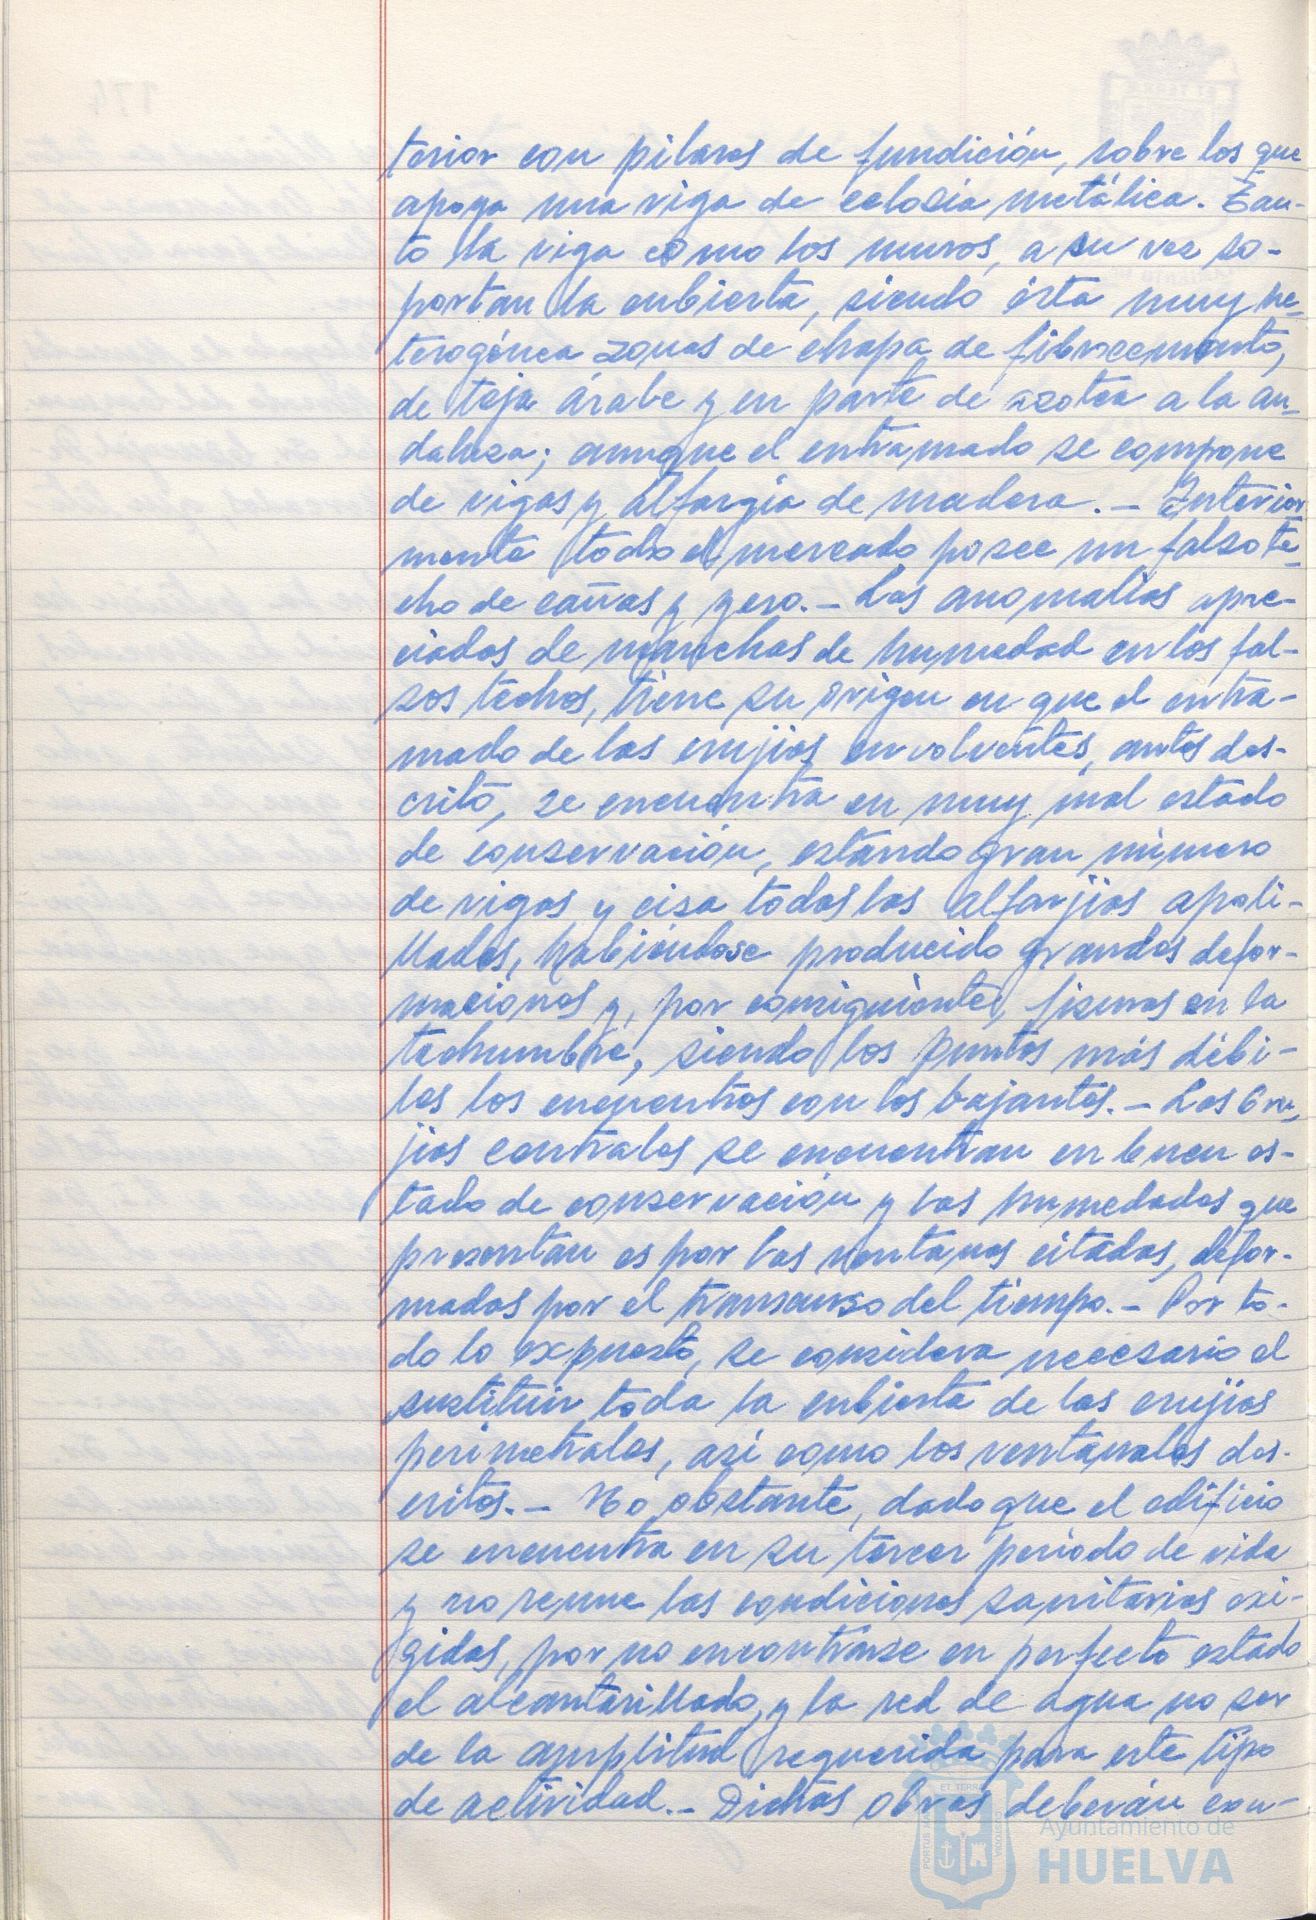 terior con pilares de fundición, sobre los que
apoya una viga de celosía metálica. Tan-
to la viga como los muros, a su vez so-
portan la cubierta, siendo ésta muy he-
terogénea zonas de chapa de fibrocemento,
de teja árabe y en parte de azotea a la an-
daluza; aunque el entramado se compone
de vigas y alfargia de madera. - Interior
mente todo el mercado posee un falso te-
cho de cañas y yeso. - Las anomalías apre-
ciadas de manchas de humedad en los fal-
sos techos, tiene su origen en que el entra-
mado de las crujias envolventes, antes des-
crito, se encuentra en muy mal estado
de conservación, estando gran número
de vigas y cisa todas las alfarjias apoli-
lladas, habiéndose producido grandes defor-
maciones y, por consiguiente, fisuras en la
techumbre, siendo los puntos más débi-
les los encuentros con las bajantes. - Las Cru-
jias centrales se encuentran en buen es-
tado de conservación y las humedades que
presentan es por las ventanas citadas, defor-
madas por el transcurso del tiempo. - Por to-
do lo expuesto, se considera necesario el
sustituir toda la cubierta de las crujias
perimetrales, así como los ventanales des-
critos. - No obstante, dado que el edificio
se encuentra en su tercer período de vida
y no reune las condiciones sanitarias exi-
gidas, por no encontrarse en perfecto estado
el alcantarillado, y la red de agua no ser
de la amplitud requerida para este tipo
de actividad. - Dichas obras deberán con-
Ayuntamiento de
HUELVA